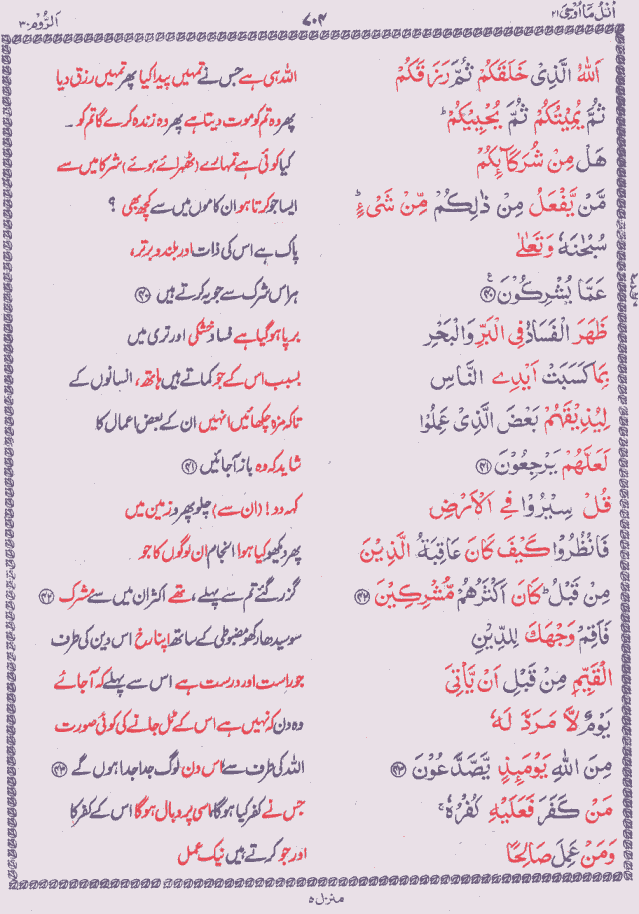 اُتْلُ مَآ اُوْحِیَ ۲۱ ۷۰۴ اَلرُّوْم ۳۰
اَللّٰهُ الَّذِیْ خَلَقَكُمْ ثُمَّ رَزَقَكُمْ اللہ ہی ہے جس نے تمہیں پیدا کیا پھر تمہیں رزق دیا
ثُمَّ یُمِیْتُكُمْ ثُمَّ یُحْیِیْكُمْ ؕ پھر وہ تم کو موت دیتا ہے پھر وہ زندہ کرے گا تم کو ۔
هَلْ مِنْ شُرَكَآئِكُمْ کیا کوئی ہے تمہارے (ٹھہرائے ہوئے) شرکا میں سے
مَّنْ یَّفْعَلُ مِنْ ذٰلِكُمْ مِّنْ شَیْءٍ ؕ ایسا جو کرتا ہو ان کاموں میں سے کچھ بھی ؟
سُبْحٰنَهٗ وَتَعٰلٰی پاک ہے اس کی ذات اور بلند و برتر،
عَمَّا یُشْرِكُوْنَ ﴿۴۰﴾ ع ہر اس شرک سے جو یہ کرتے ہیں ﴿۴۰﴾
ظَهَرَ الْفَسَادُ فِی الْبَرِّ وَالْبَحْرِ برپا ہو گیا ہے فساد خشکی اور تری میں
بِمَا كَسَبَتْ اَیْدِی النَّاسِ بسبب اس کے جو کماتے ہیں ہاتھ، انسانوں کے
لِیُذِیْقَهُمْ بَعْضَ الَّذِیْ عَمِلُوْا تاکہ مزہ چکھائیں انہیں ان کے بعض اعمال کا
لَعَلَّهُمْ یَرْجِعُوْنَ ﴿۴۱﴾ شاید کہ وہ باز آ جائیں ﴿۴۱﴾
قُلْ سِیْرُوْا فِی الْاَرْضِ کہہ دو! (ان سے) چلو پھرو زمین میں
فَانْظُرُوْا كَیْفَ كَانَ عَاقِبَةُ الَّذِیْنَ پھر دیکھو کیا ہوا انجام ان لوگوں کا جو
مِنْ قَبْلُ ؕ كَانَ اَكْثَرُهُمْ مُّشْرِكِیْنَ ﴿۴۲﴾ گزر گئے تم سے پہلے، تھے اکثر ان میں سے مشرک ﴿۴۲﴾
فَاَقِمْ وَجْهَكَ لِلدِّیْنِ سو سیدھا رکھو مضبوطی کے ساتھ اپنا رخ اس دین کی طرف
الْقَیِّمِ مِنْ قَبْلِ اَنْ یَّاْتِیَ جو راست اور درست ہے اس سے پہلے کہ آ جائے
یَوْمٌ لَّا مَرَدَّ لَهٗ وہ دن کہ نہیں ہے اس کے ٹل جانے کی کوئی صورت
مِنَ اللّٰهِ یَوْمَىِٕذٍ یَّصَّدَّعُوْنَ ﴿۴۳﴾ اللہ کی طرف سے اس دن لوگ جدا جدا ہوں گے ﴿۴۳﴾
مَنْ كَفَرَ فَعَلَیْهِ كُفْرُهٗ ۚ جس نے کفر کیا ہو گا اسی پر وبال ہو گا اس کے کفر کا
وَمَنْ عَمِلَ صَالِحًا اور جو کرتے ہیں نیک عمل
منزل ۵